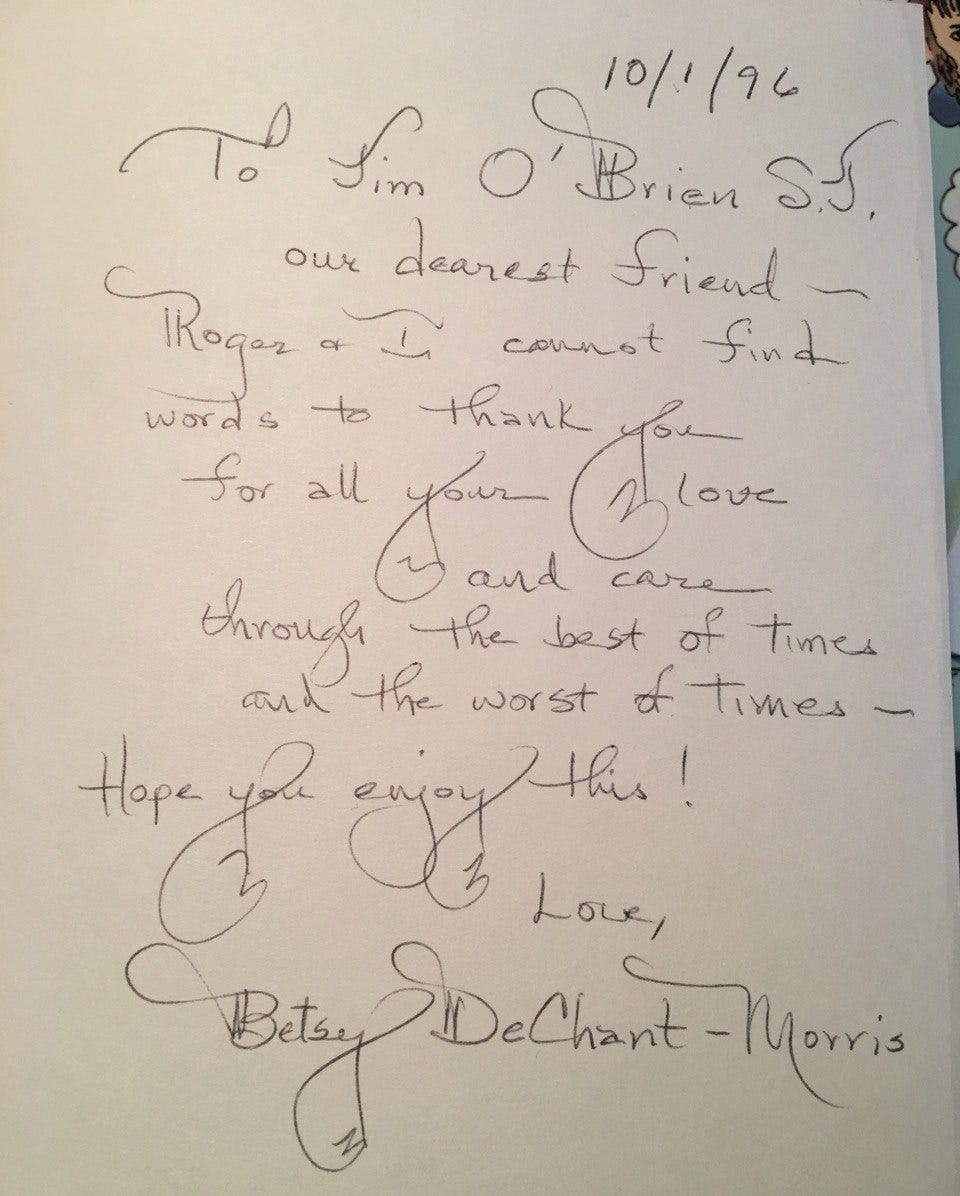 10/1/96
To Jim O'Brien S.J.
our dearest friend –
Roger & I cannot find
words to thank you
for all your love
and care
through the best of times
and the worst of times –
Hope you enjoy this!
Love,
Betsy DeChant-Morris